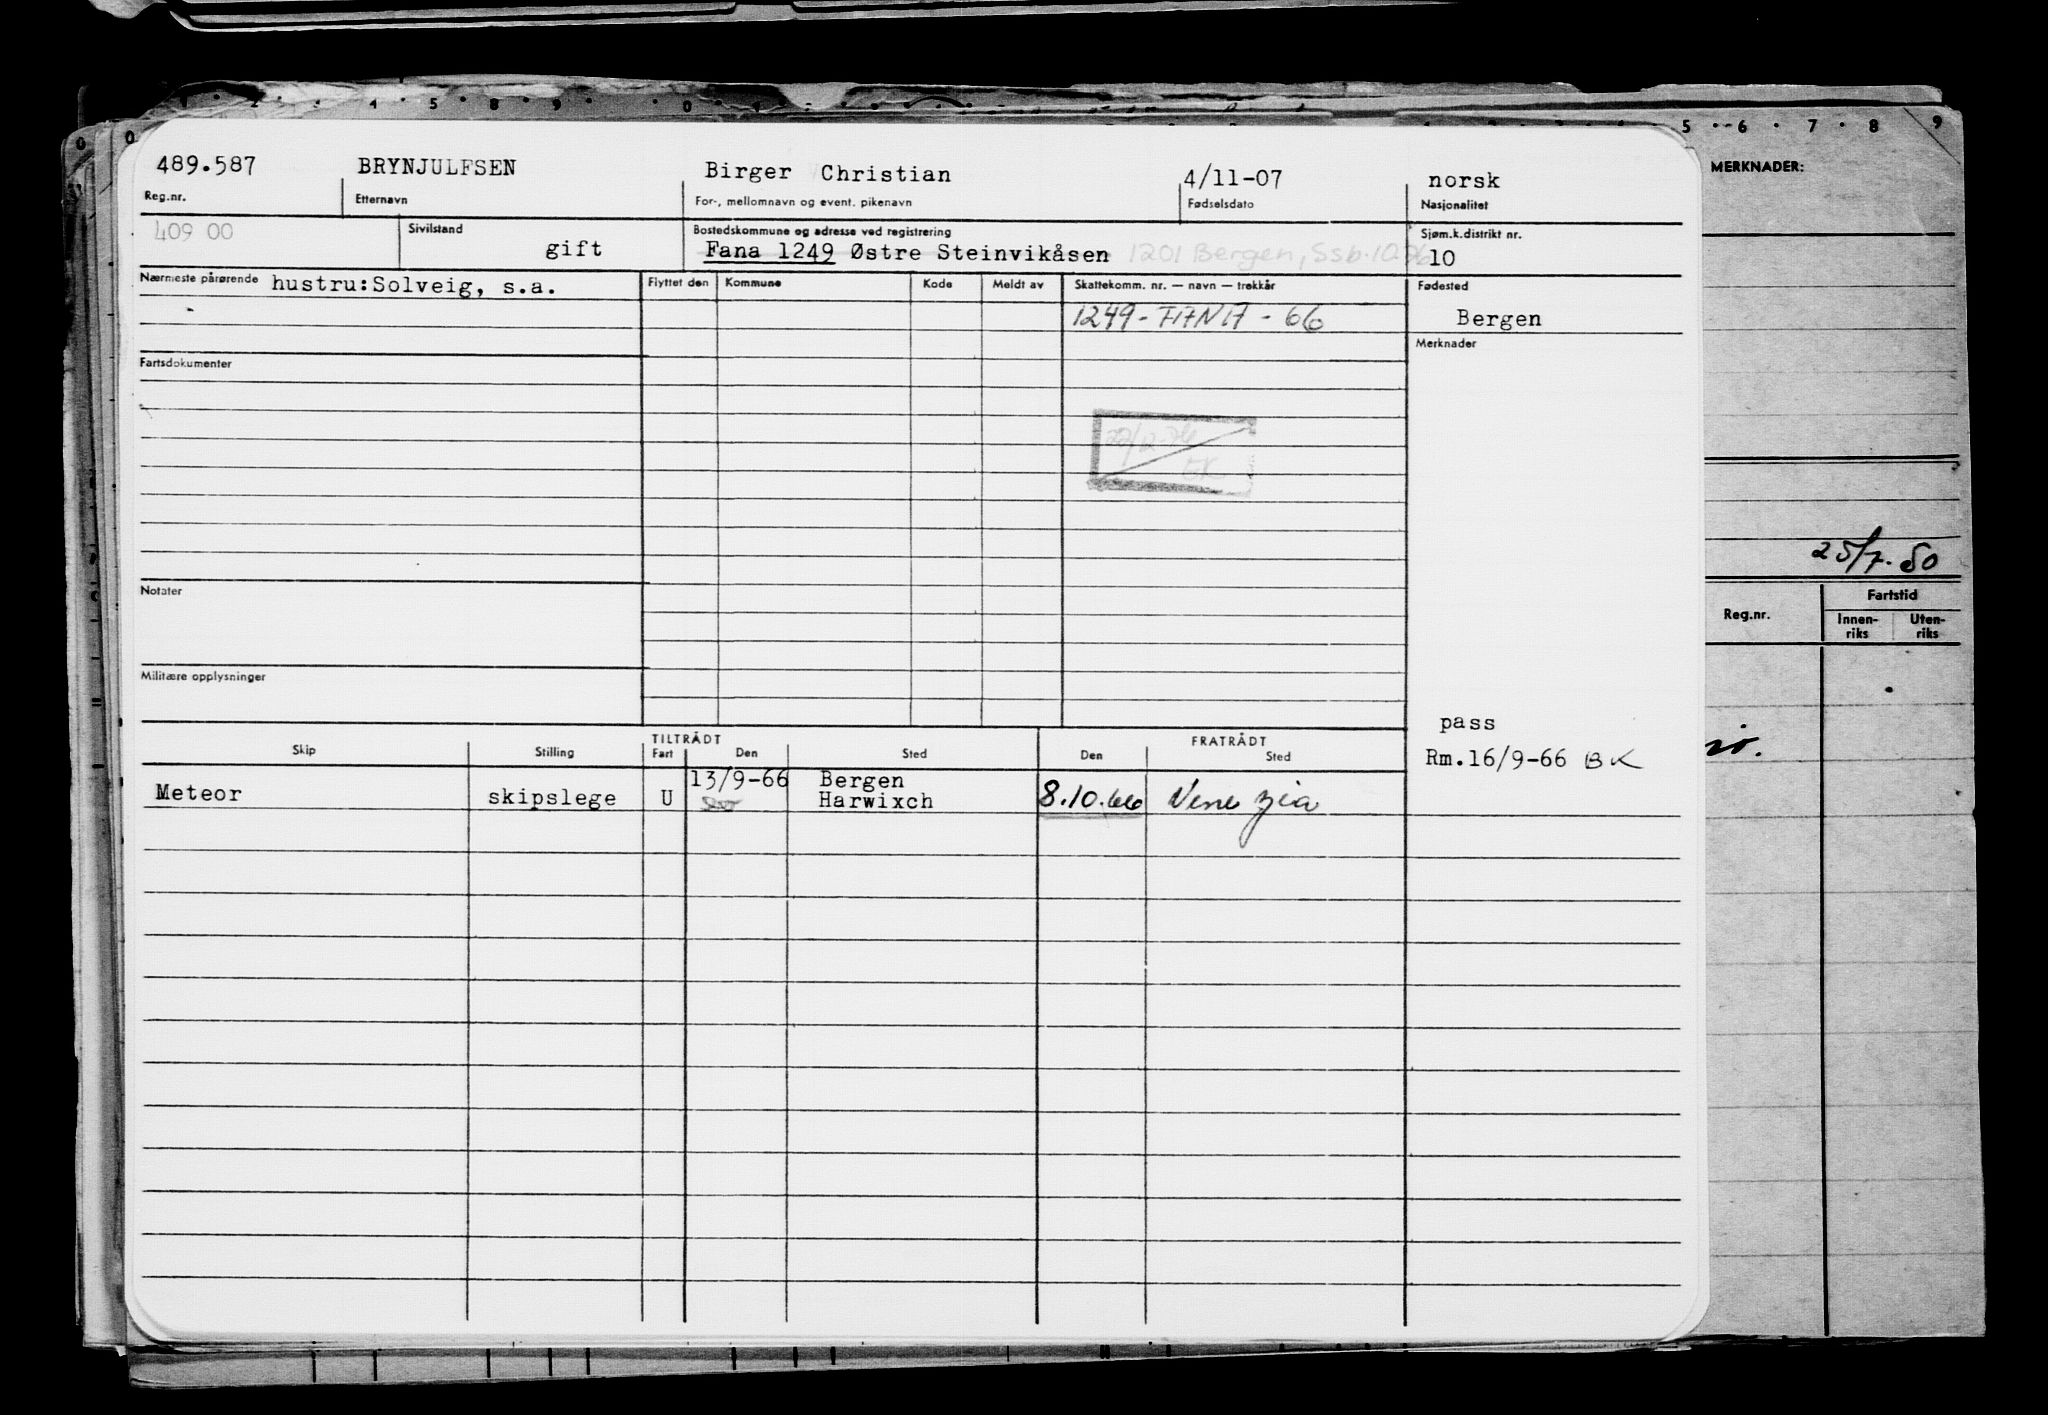 489.587 BRYNJULFSEN Birger Christian 4/11-07 norsk
Reg.nr. Etternavn For-, mellomnavn og event. pikenavn Fødselsdato Nasjonalitet
409 00 Sivilstand gift Bostedskommune og adresse ved registrering Sjøm.k.distrikt nr.
Fana 1249 Østre Steinvikåsen 1201 Bergen, Ssb. 10
Nærmeste pårørende hustru:Solveig, s.a. Flyttet den Kommune Kode Meldt av Skattekomm. nr. — navn — trekkår Fødested
1249 - FANA - 66 Bergen
Fartsdokumenter Merknader
Notater
Militære opplysninger
pass
Rm.16/9-66 BK
TILTRÅDT FRATRÅDT
Skip Stilling Fart Den Sted Den Sted
Meteor skipslege U 13/9-66 Bergen
Harwixch 8.10.66 Venezia
MERKNADER:
25/7.50
Reg.nr. Fartstid
Innen-
riks Uten-
riks
0 1 2 3 4 5 6 7 8 9